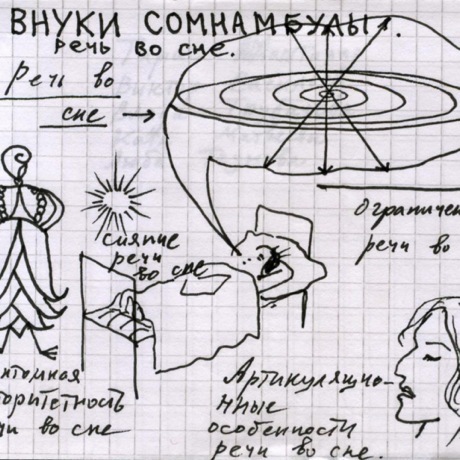 ВНУКИ СОМНАМБУЛЫ.
речь во сне.
Речь во
сне
Ограничен
речи во
сияние
речи
во сне
нтомная
оритетность
чи во сне
Артикуляцио-
нные
особенности
речи во сне.